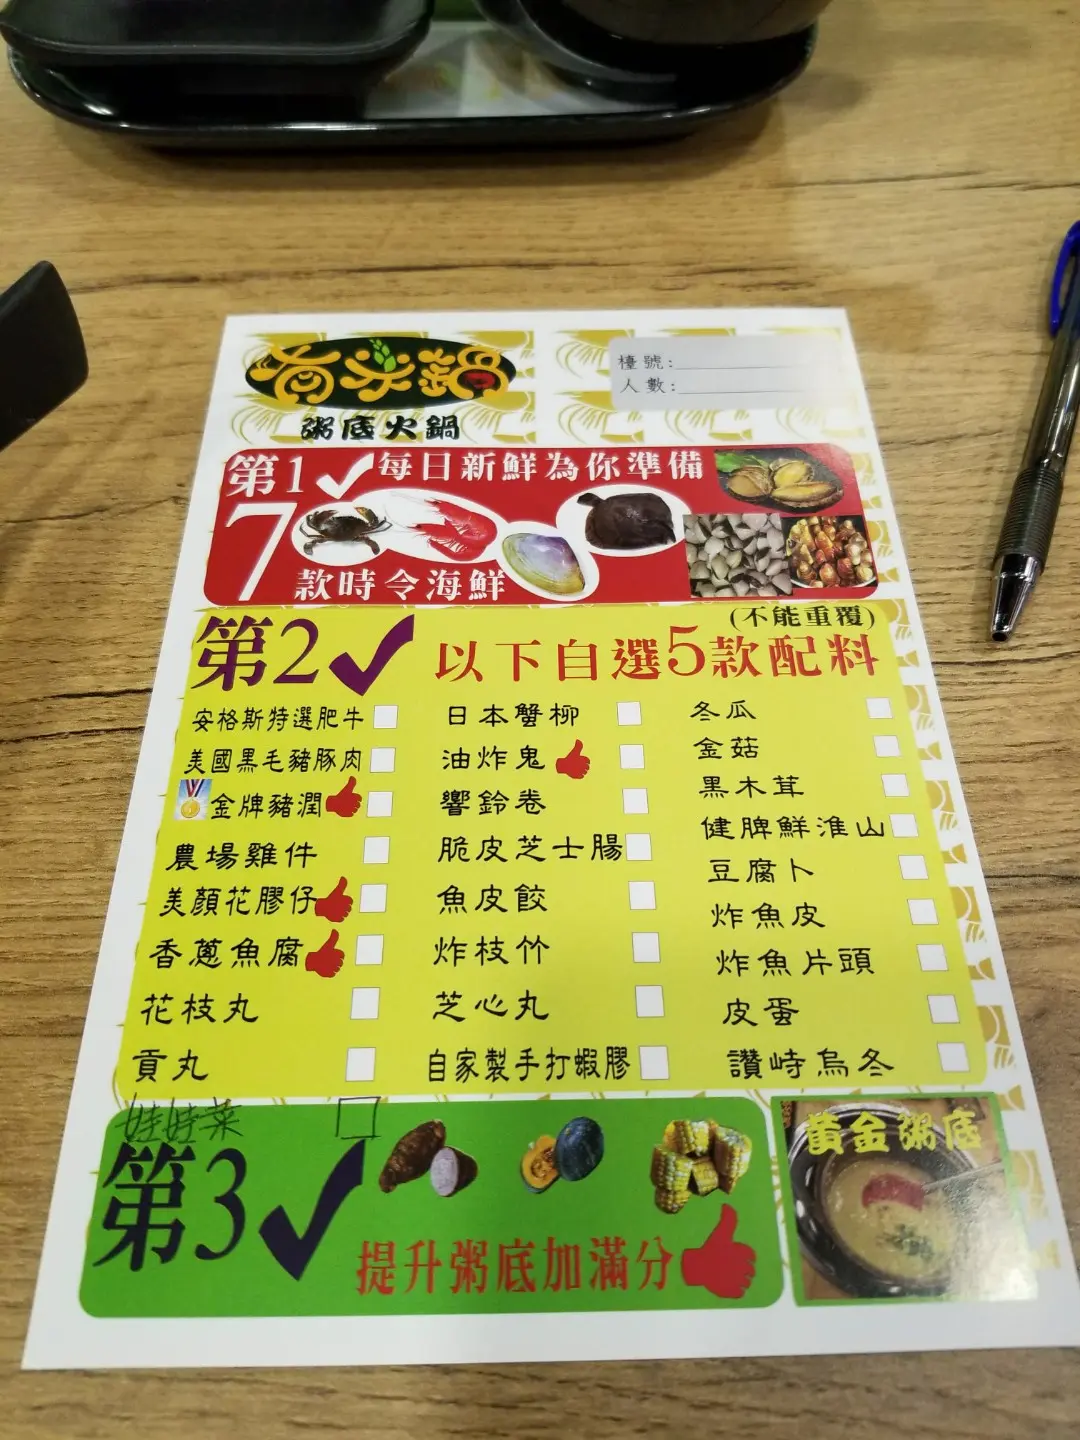 有米鍋
粥底火鍋
檯號:
人數:
第1 每日新鮮為你準備
7款時令海鮮
第2 以下自選5款配料
(不能重覆)
安格斯特選肥牛
美國黑毛豬豚肉
金牌豬潤
農場雞件
美顏花膠仔
香蔥魚腐
花枝丸
貢丸
娃娃菜
日本蟹柳
油炸鬼
響鈴卷
脆皮芝士腸
魚皮餃
炸枝竹
芝心丸
自家製手打蝦膠
冬瓜
金菇
黑木茸
健脾鮮淮山
豆腐卜
炸魚皮
炸魚片頭
皮蛋
讚岐烏冬
第3
提升粥底加滿分
黃金粥底